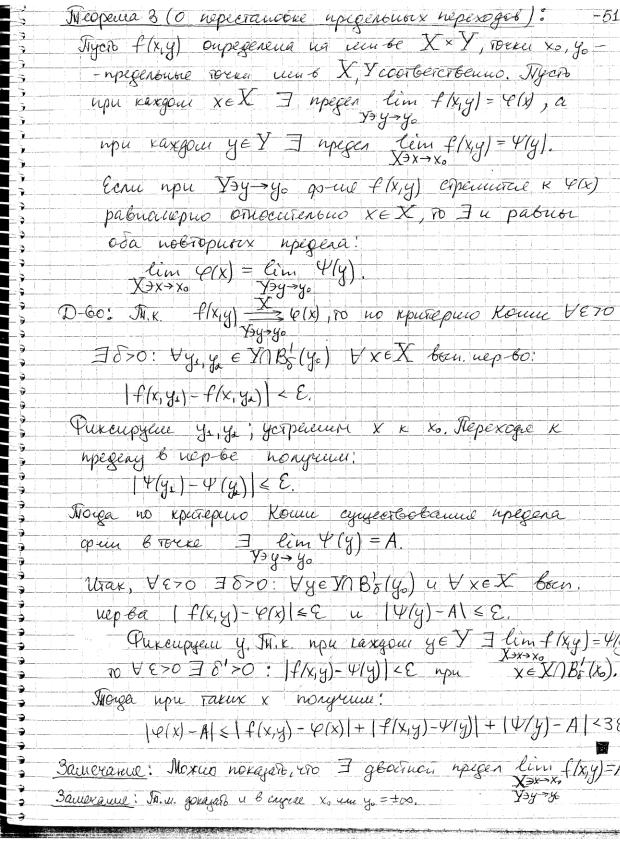 Теорема 3 (о перестановке предельных переходов): -51
Пусть f(x,y) определена на мн-ве X×Y, точки x₀, y₀ -
- предельные точки мн-в X, Y соответственно. Пусть
при каждом x∈X ∃ предел lim_{Y∋y→y₀} f(x,y) = φ(x), а
при каждом y∈Y ∃ предел lim_{X∋x→x₀} f(x,y) = Ψ(y).
Если при Y∋y→y₀ ф-ция f(x,y) стремится к φ(x)
равномерно относительно x∈X, то ∃ и равны
оба повторных предела:
lim_{X∋x→x₀} φ(x) = lim_{Y∋y→y₀} Ψ(y).
Д-во: Т.к. f(x,y) ⇉^{X}_{Y∋y→y₀} φ(x), то по критерию Коши ∀ε>0
∃δ>0: ∀y₁,y₂ ∈ Y∩B'_δ(y₀) ∀x∈X вып. нер-во:
|f(x,y₁)-f(x,y₂)| < ε.
Фиксируем y₁,y₂; устремим x к x₀. Переходя к
пределу в нер-ве получим:
|Ψ(y₁)-Ψ(y₂)| ≤ ε.
Тогда по критерию Коши существования предела
ф-ии в точке ∃ lim_{Y∋y→y₀} Ψ(y) = A.
Итак, ∀ε>0 ∃δ>0: ∀y∈Y∩B'_δ(y₀) и ∀x∈X вып.
нер-ва |f(x,y)-φ(x)| ≤ ε и |Ψ(y)-A| ≤ ε.
Фиксируем y. Т.к. при каждом y∈Y ∃ lim_{X∋x→x₀} f(x,y)=Ψ(y
то ∀ε>0 ∃δ'>0: |f(x,y)-Ψ(y)|<ε при x∈X∩B'_δ'(x₀).
Тогда при таких x получим:
|φ(x)-A| ≤ |f(x,y)-φ(x)|+|f(x,y)-Ψ(y)|+|Ψ(y)-A|<3ε
Замечание: Можно показать, что ∃ двойной предел lim_{X∋x→x₀, Y∋y→y₀} f(x,y)=A
Замечание: Т.м. доказать и в случае x₀ или y₀ = ±∞.